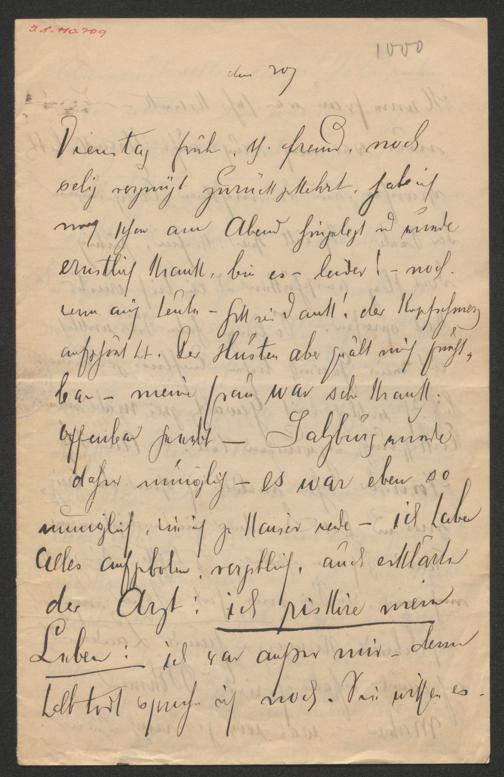 I.N. 140.709
1000
den 20/
Dienstag früh, th. Freund, noch
selig vergnügt zurückgekehrt, hab ich
mich schon am Abend hingelegt und wurde
ernstlich krank, bin es – leider! – noch.
wenn auch heute – Gott sei Dank! der Kopfschmerz
aufgehört hat. Der Husten aber quält mich furcht-
bar – meine Frau war sehr krank.
offenbar – Salzburg wurde
daher unmöglich – es war eben so
unmöglich, wie ich zu Kaiser – ich habe
Alles aufgeboten, vergeblich, auch erklärte
der Arzt: ich riskire mein
Leben: ich war außer mir – denn
halbtodt spreche ich noch. Sie wissen es.